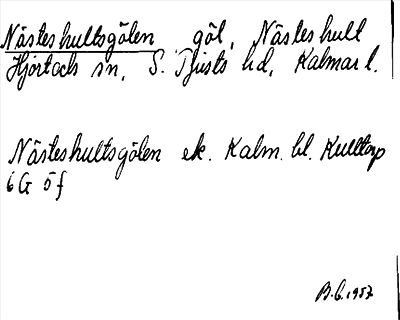 Nästeshultsgölen göl, Nästeshult
Hjorteds sn, S. Tjusts hd, Kalmar l.
Nästeshultsgölen ek. Kalm. bl. Kulltorp
6G 5f
B.G. 1957